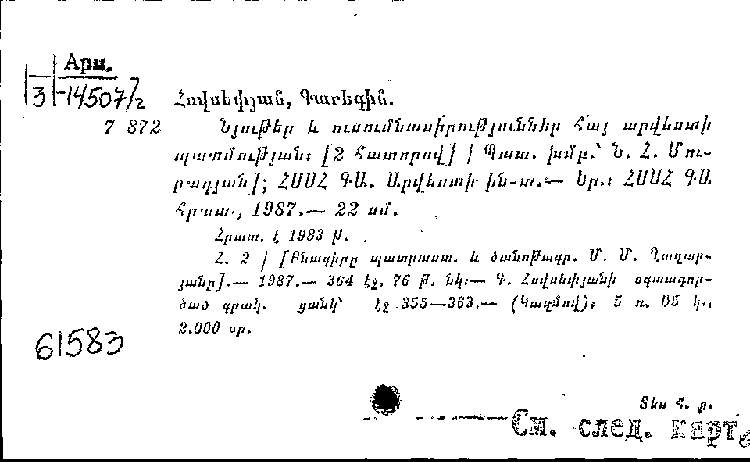 Арм.
3-14507/2
Հովսեփյան, Գարեգին.
7 872 Նյութեր և ուսումնասիրություններ հայ արվեստի
պատմության: [2 հատորով] / Պատ. խմբ.՝ Ն. Հ. Մու-
րադյան]; ՀՍՍՀ ԳԱ. Արվեստի ին-տ.— Եր.: ՀՍՍՀ ԳԱ
հրատ., 1987.— 22 սմ.
Հրատ. է 1983 թ.
Հ. 2 / [Բնագիրը պատրաստ. և ծանոթագր. Մ. Մ. Ղազար-
յանը].— 1987.— 364 էջ, 76 թ. նկ.— Գ. Հովսեփյանի օգտագոր-
ծած գրակ. ցանկ՝ էջ 355—363.— (Կազմով): 5 ռ. 05 կ.,
2.000 օր.
61583
Տես հ. ք.
См. след. карт.